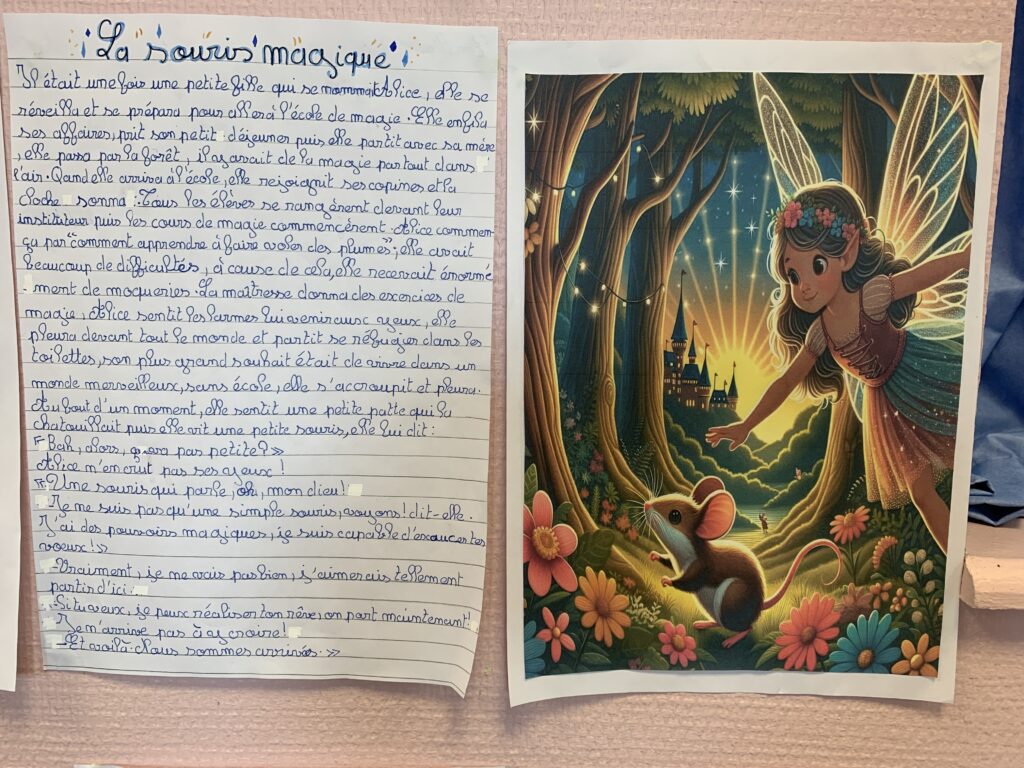 La souris magique
Il était une fois une petite fille qui se nommait Alice, elle se
réveilla et se prépara pour aller à l'école de magie. Elle enfila
ses affaires, prit son petit déjeuner puis elle partit avec sa mère
, elle passa par la forêt, il y avait de la magie partout dans
l'air. Qand elle arriva à l'école, elle rejoignit ses copines et la
cloche sonna. Tous les élèves se rangèrent devant leur
instituteur puis les cours de magie commencèrent. Alice commen-
ça par "comment apprendre à faire voler des plumes"; elle avait
beaucoup de difficultés, à cause de cela, elle recevait énormé
-ment de moqueries. La maîtresse donna des exercices de
magie, Alice sentit les larmes lui venir aux yeux, elle
pleura devant tout le monde et partit se réfugier dans les
toilettes, son plus grand souhait était de vivre dans un
monde merveilleux, sans école, elle s'accroupit et pleura.
Au bout d'un moment, elle sentit une petite patte qui la
chatouillait puis elle vit une petite souris, elle lui dit:
«-Bah, alors, ça va pas petite?»
Alice n'en crut pas ses yeux!
«-Une souris qui parle, oh, mon dieu!
-Je ne suis pas qu'une simple souris, voyons! dit-elle.
J'ai des pouvoirs magiques, je suis capable d'exaucer tes
voeux!»
-Vraiment, je ne vais pas bien, j'aimerais tellement
partir d'ici.
-Si tu veux, je peux réaliser ton rêve, on part maintenant!
-Je n'arrive pas à y croire!
-Et voilà. Nous sommes arrivés.»